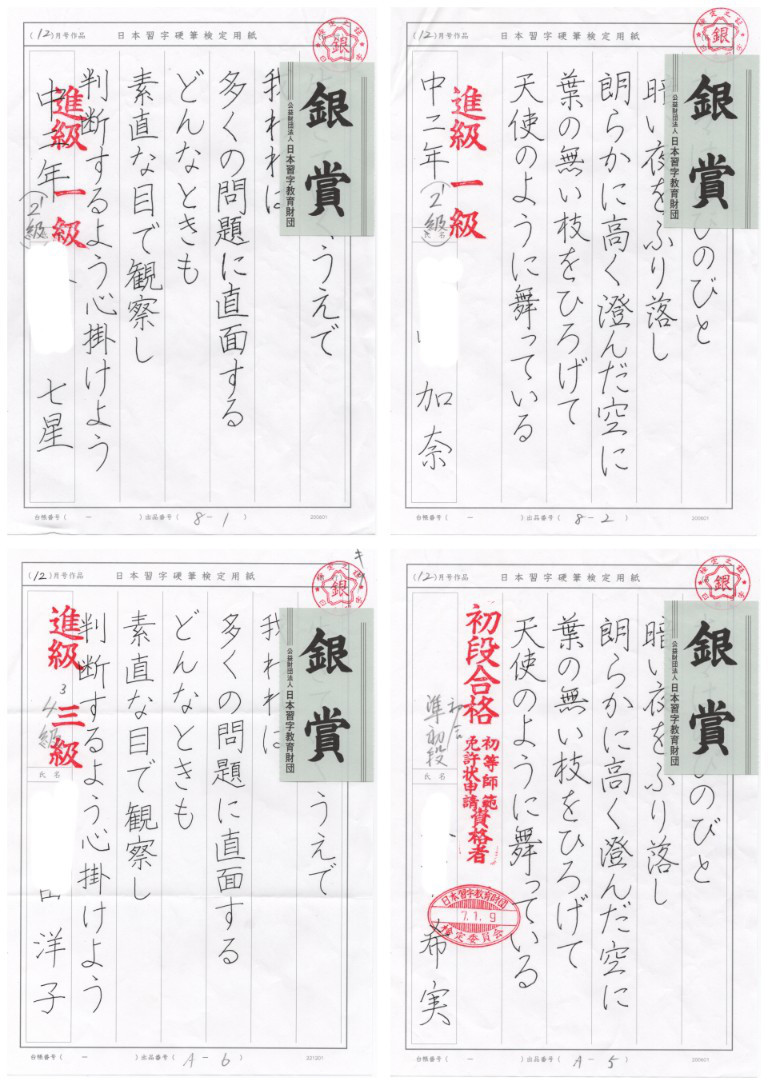 (12)月号作品 日本習字硬筆検定用紙
検定之証
銀
銀賞
公益財団法人 日本習字教育財団
うえで
我われは
多くの問題に直面する
どんなときも
素直な目で観察し
判断するよう心掛けよう
進級 一級
中二年
2級
七星
台帳番号( - ) 出品番号( 8-1 )
200601
(12)月号作品 日本習字硬筆検定用紙
検定之証
銀
銀賞
公益財団法人 日本習字教育財団
のびのびと
暗い夜をふり落し
朗らかに高く澄んだ空に
葉の無い枝をひろげて
天使のように舞っている
進級 一級
中二年
2級
加奈
台帳番号( - ) 出品番号( 8-2 )
200601
(12)月号作品 日本習字硬筆検定用紙
検定之証
銀
銀賞
公益財団法人 日本習字教育財団
うえで
我われは
多くの問題に直面する
どんなときも
素直な目で観察し
判断するよう心掛けよう
進級 三級
3
4級
氏名
洋子
台帳番号( - ) 出品番号( A-6 )
221201
(12)月号作品 日本習字硬筆検定用紙
検定之証
銀
銀賞
公益財団法人 日本習字教育財団
のびと
暗い夜をふり落し
朗らかに高く澄んだ空に
葉の無い枝をひろげて
天使のように舞っている
初段合格
初等師範資格者
免許状申請
準初段
氏名
日本習字教育財団
7.1.9
検定委員会
希実
台帳番号( - ) 出品番号( A-5 )
200601